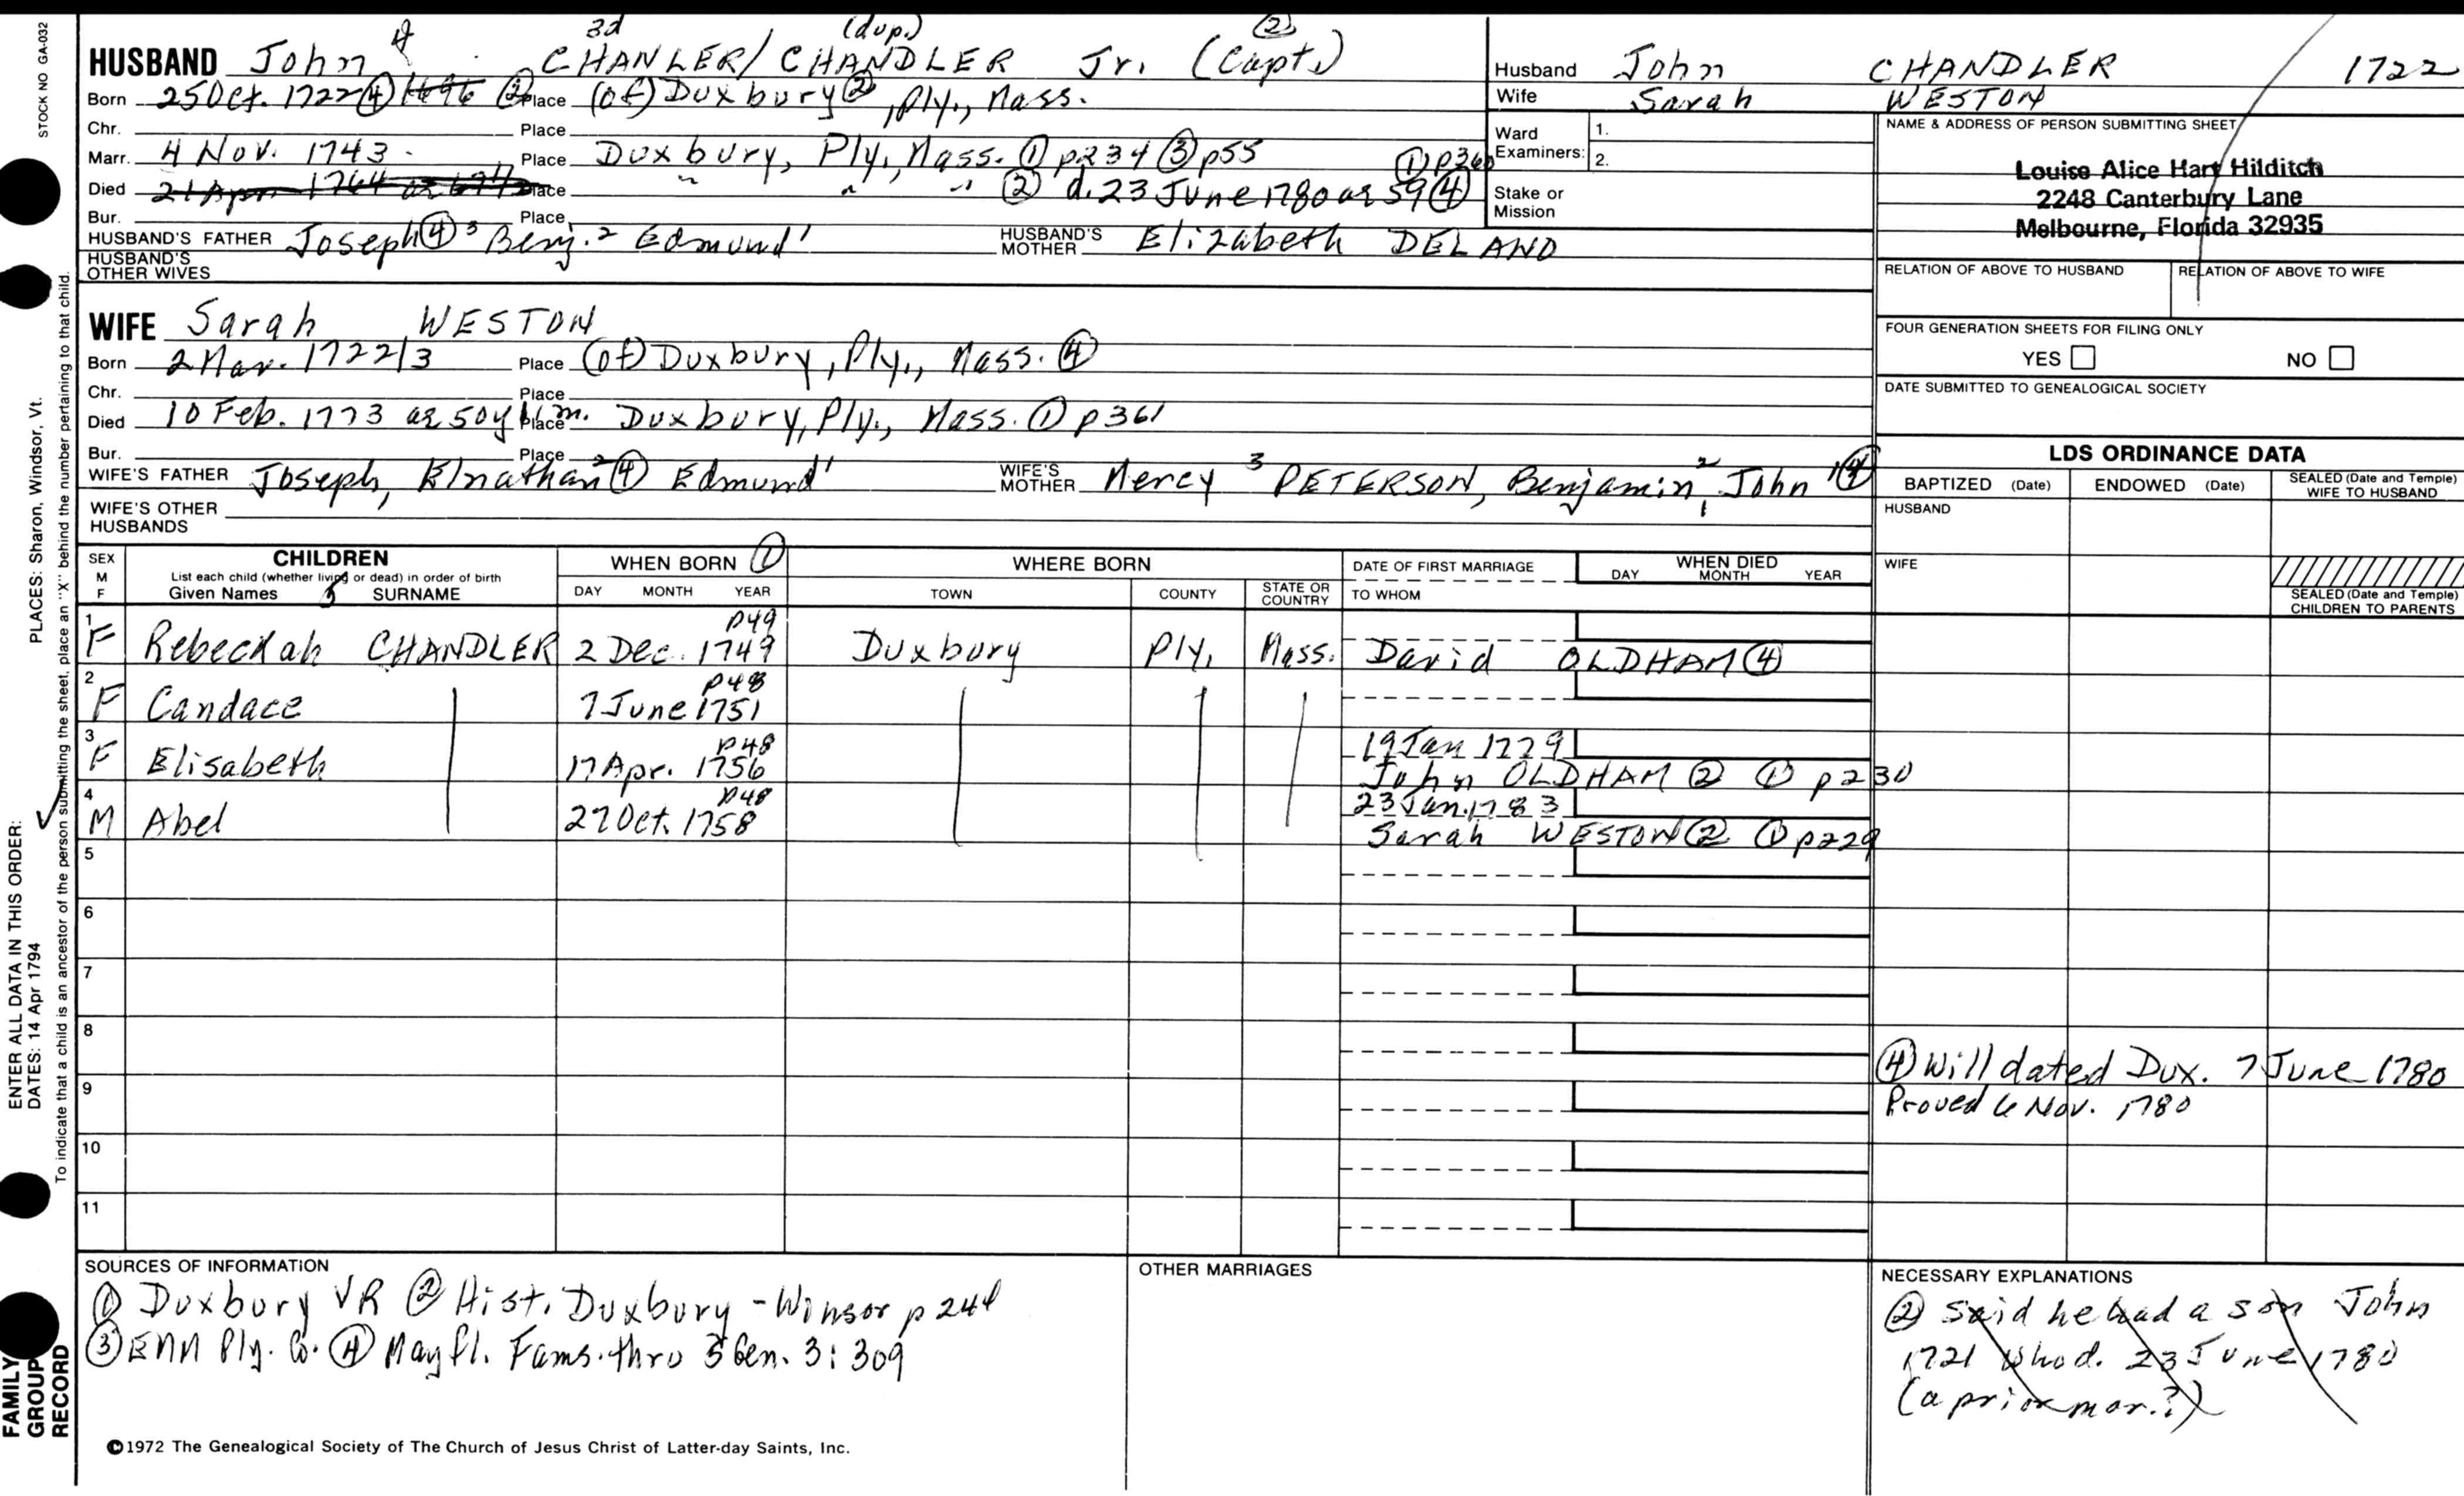 STOCK NO GA-032
4 3d (dup.) (2)
HUSBAND John CHANLER/CHANDLER Jr. (Capt.)
Born 25 Oct. 1722 (4) 1696 (2) Place (of) Duxbury (2), Ply., Mass.
Chr. Place
Marr. 4 Nov. 1743 Place Duxbury, Ply, Mass. (1) p234 (3) p55 (1) p360
Died 21 Apr 1764 ae 67 Place " " " (2) d. 23 June 1780 ae 59 (4)
Bur. Place
HUSBAND'S FATHER Joseph (4) 3 Benj. 2 Edmund 1 HUSBAND'S MOTHER Elizabeth DELAND
HUSBAND'S OTHER WIVES
Husband John CHANDLER 1722
Wife Sarah WESTON
Ward Examiners: 1. 2.
Stake or Mission
NAME & ADDRESS OF PERSON SUBMITTING SHEET
Louise Alice Hart Hilditch
2248 Canterbury Lane
Melbourne, Florida 32935
RELATION OF ABOVE TO HUSBAND RELATION OF ABOVE TO WIFE
FOUR GENERATION SHEETS FOR FILING ONLY
YES NO
DATE SUBMITTED TO GENEALOGICAL SOCIETY
WIFE Sarah WESTON
Born 2 Mar. 1722/3 Place (of) Duxbury, Ply., Mass. (4)
Chr. Place
Died 10 Feb. 1773 ae 50y 11 m. Place Duxbury, Ply., Mass. (1) p361
Bur. Place
WIFE'S FATHER Joseph, Elnathan 2 (4) Edmund 1 WIFE'S MOTHER Mercy 3 PETERSON, Benjamin 2, John 1 (4)
WIFE'S OTHER HUSBANDS
LDS ORDINANCE DATA
BAPTIZED (Date) ENDOWED (Date) SEALED (Date and Temple) WIFE TO HUSBAND
HUSBAND
WIFE
SEALED (Date and Temple) CHILDREN TO PARENTS
SEX M F CHILDREN WHEN BORN (1) WHERE BORN DATE OF FIRST MARRIAGE WHEN DIED
List each child (whether living or dead) in order of birth
Given Names SURNAME DAY MONTH YEAR TOWN COUNTY STATE OR COUNTRY TO WHOM DAY MONTH YEAR
p49
1 F Rebeckah CHANDLER 2 Dec. 1749 Duxbury Ply. Mass. David OLDHAM (4)
p48
2 F Candace 7 June 1751
p48 19 Jan 1779
3 F Elisabeth 17 Apr. 1756 John OLDHAM (2) (1) p230
p48 23 Jan. 1783
4 M Abel 27 Oct. 1758 Sarah WESTON (2) (1) p229
5
6
7
8
(4) Will dated Dux. 7 June 1780
9
Proved 6 Nov. 1780
10
11
SOURCES OF INFORMATION
(1) Duxbury VR (2) Hist. Duxbury - Winsor p 244
(3) ENM Ply. Co. (4) Mayfl. Fams. thru 5 Gen. 3: 309
OTHER MARRIAGES
NECESSARY EXPLANATIONS
(2) Said he had a son John
1721 who d. 23 June 1780
(a prior mar.?)
©1972 The Genealogical Society of The Church of Jesus Christ of Latter-day Saints, Inc.
PLACES: Sharon, Windsor, Vt.
ENTER ALL DATA IN THIS ORDER:
DATES: 14 Apr 1794
To indicate that a child is an ancestor of the person submitting the sheet, place an "X" behind the number pertaining to that child.
FAMILY
GROUP
RECORD